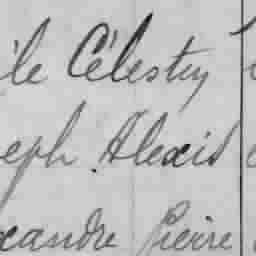 ile Célestin
seph Alexis
xandre Pierre